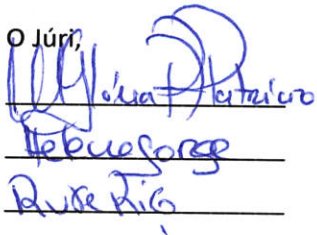 O Júri,
Glória Patrício
Helena Jorge
Rute Rico